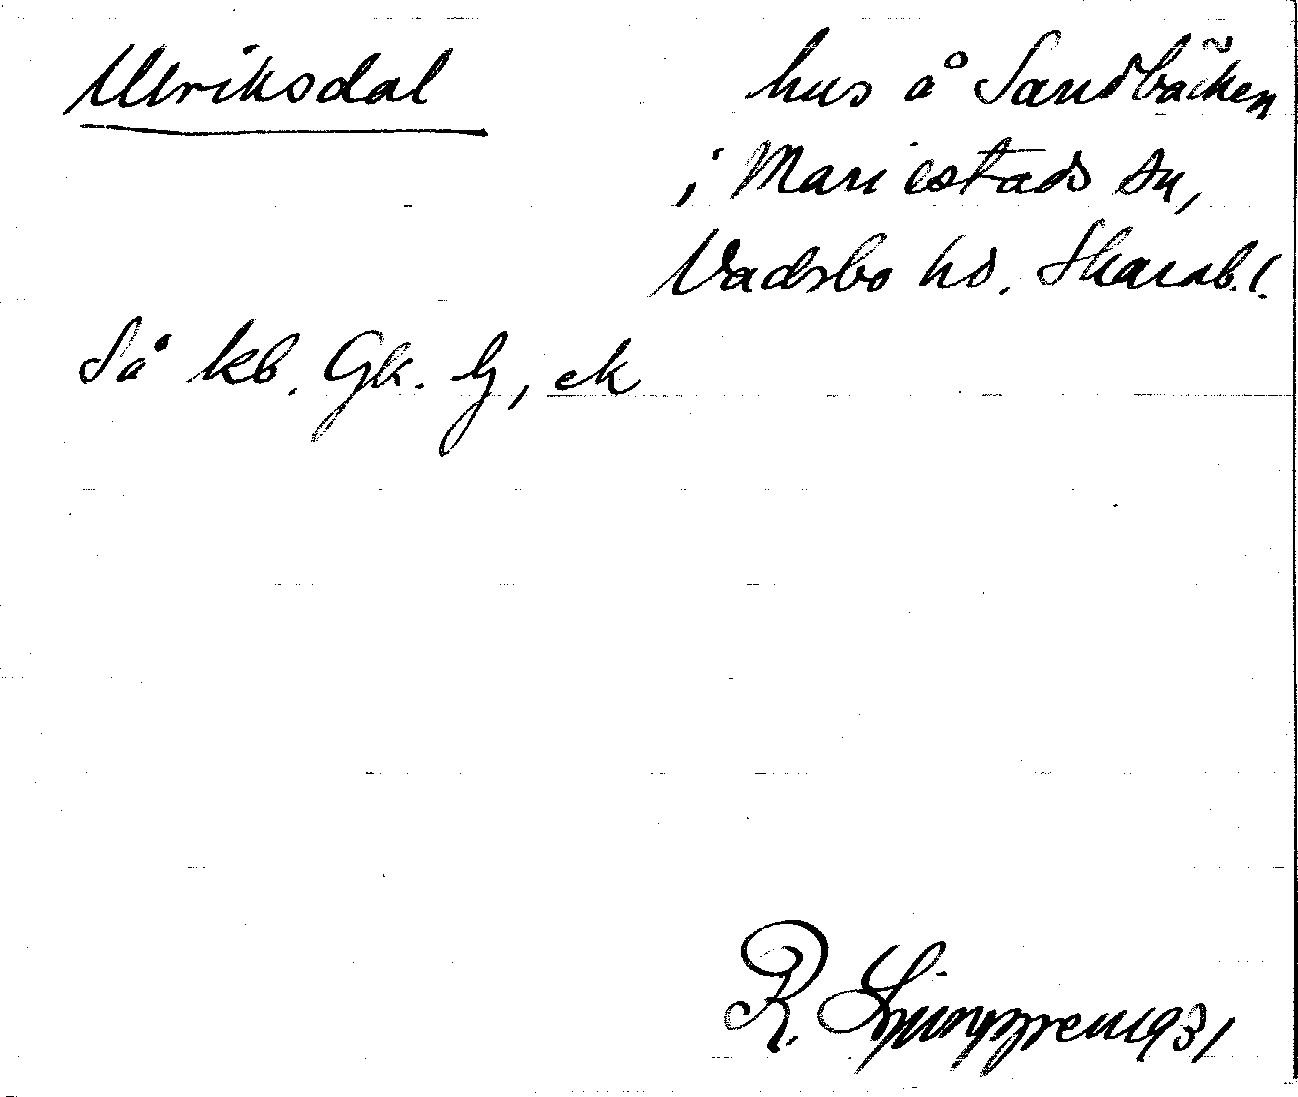 Ulriksdal
hus å Sandbäcken
i Mariestads sn,
Vadsbo hd. Skarab.l.
Så kb. Gk. Lj, ek
R. Ljunggren 1931